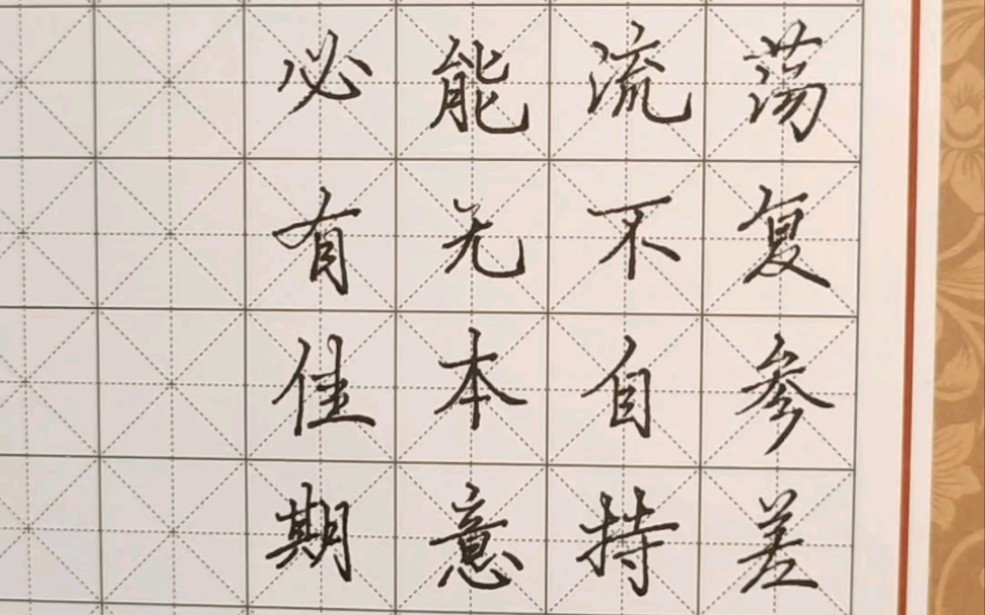 荡复参差
流不自持
能无本意
必有佳期